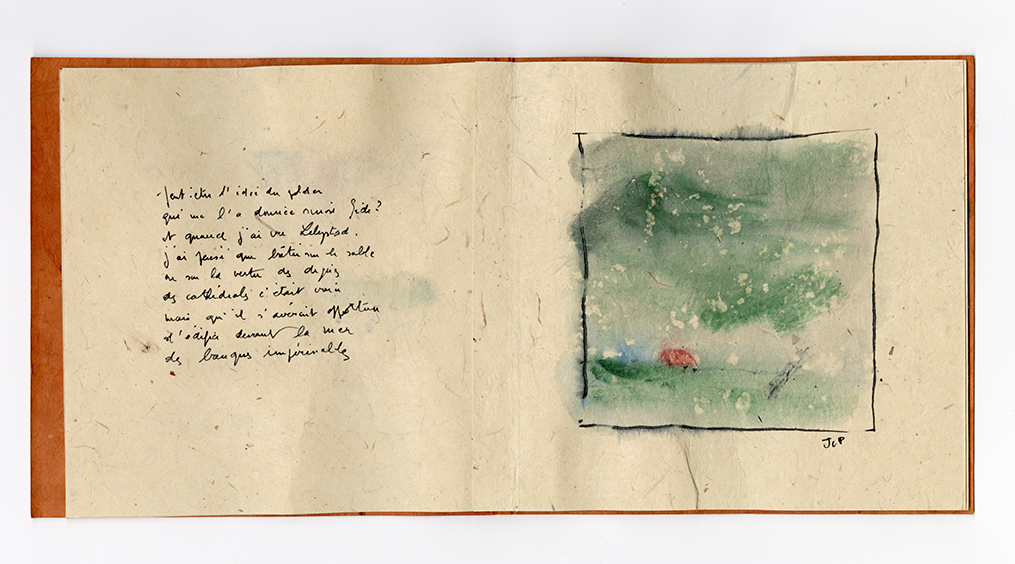 peut-être l'idée du polder
qui me l'a donnée sinon Gide?
et quand j'ai vu Lelystad.
j'ai pensé que bâtir sur le sable
ou sur la vertu des
des cathédrales c'était vain
mais qu'il s'avérait opportun
d'édifier devant la mer
des banques impérissables
JcP